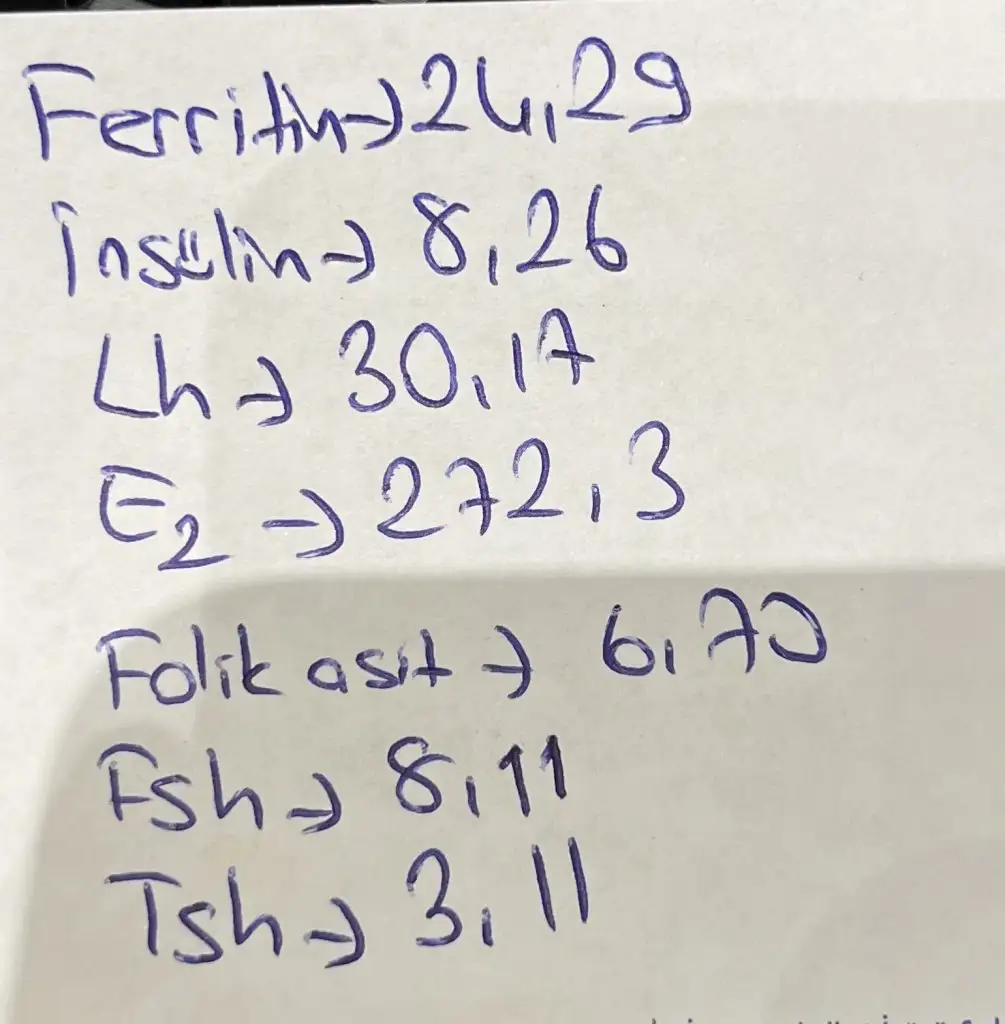 Ferritin→24,29
İnsülin→ 8,26
Lh→ 30,17
E2→272,3
Folik asit→ 6,70
Fsh→ 8,11
Tsh→ 3,11